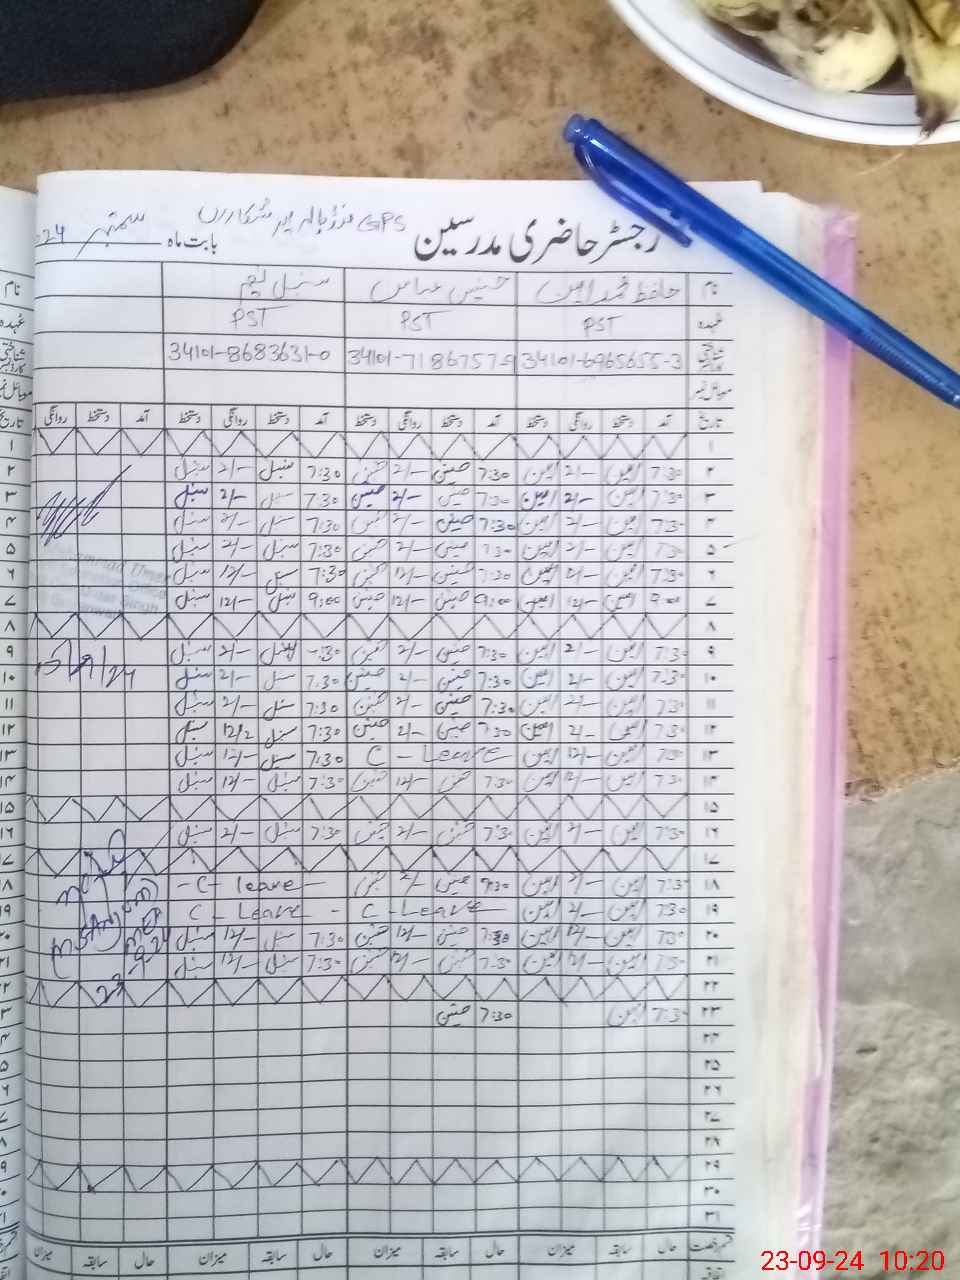 GPS
رجسٹر حاضری مدرسین بابت ماہ ستمبر 24
نام حافظ محمد امین حسنین عباس سنبل
عہدہ PST PST PST
34101-6965655-3 34101-7186757-9 34101-8683631-0
موبائل نمبر
تاریخ آمد دستخط روانگی دستخط آمد دستخط روانگی دستخط آمد دستخط روانگی دستخط آمد دستخط روانگی
۱
۲ 7:30 امین 2/- امین 7:30 حسنین 2/- حسنین 7:30 سنبل 2/- سنبل
۳ 7:30 امین 2/- امین 7:30 حسنین 2/- حسنین 7:30 سنبل 2/- سنبل
۴ 7:30 امین 2/- امین 7:30 حسنین 2/- حسنین 7:30 سنبل 2/- سنبل
۵ 7:30 امین 2/- امین 7:30 حسنین 2/- حسنین 7:30 سنبل 2/- سنبل
۶ 7:30 امین امین 7:30 حسنین 12/- حسنین 7:30 سنبل 12/- سنبل
۷ 9:00 امین 12/- امین 9:00 حسنین 12/- حسنین 9:00 سنبل 12/- سنبل
۸
۹ 7:30 امین 2/- امین 7:30 حسنین 2/- حسنین سنبل 2/- سنبل
۱۰ 7:30 امین 2/- امین 7:30 حسنین 2/- حسنین 7:30 سنبل 2/- سنبل
۱۱ 7:30 امین 2/- امین 7:30 حسنین 2/- حسنین 7:30 سنبل 2/- سنبل
۱۲ 7:30 امین 2/- امین 7:30 حسنین 2/- حسنین 7:30 سنبل سنبل
۱۳ 7:30 امین 12/- امین C - Leave 7:30 سنبل 12/- سنبل
۱۴ 7:30 امین 12/- امین 7:30 حسنین 12/- حسنین 7:30 سنبل 12/- سنبل
۱۵
۱۶ 7:30 امین 2/- امین 7:30 حسنین 2/- حسنین 7:30 سنبل 2/- سنبل
۱۷
۱۸ 7:30 امین 2/- امین 7:30 حسنین 2/- حسنین - C - leave -
۱۹ 7:30 امین 2/- امین C - Leave C - Leave -
۲۰ 7:30 امین 12/- امین 7:30 حسنین 12/- حسنین 7:30 سنبل 12/- سنبل
۲۱ 7:30 امین 12/- امین 7:30 حسنین 12/- حسنین 7:30 سنبل 12/- سنبل
۲۲
۲۳ 7:30 امین 7:30 حسنین
۲۴
۲۵
۲۶
۲۷
۲۸
۲۹
۳۰
۳۱
حال سابقہ میزان حال سابقہ میزان حال سابقہ میزان حال سابقہ میزان
23-09-24 10:20